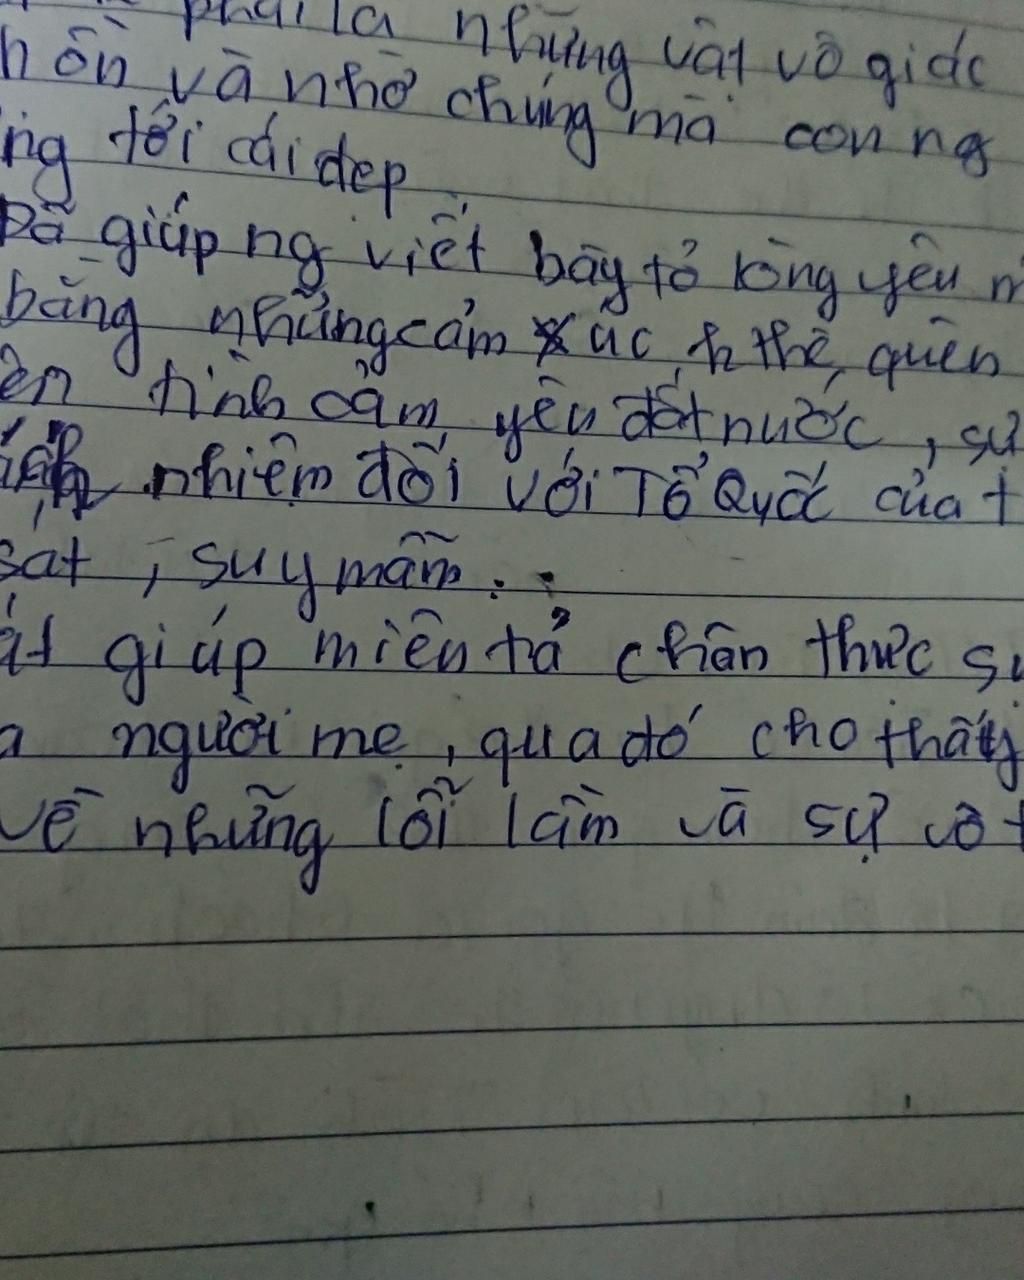 phải là những vật vô giác
hồn và nhờ chúng mà con ng
ng tới cái đẹp
Đã giúp ng viết bày tỏ lòng yêu m
bằng những cảm xúc, h thề, quên
ên tình cảm yêu đất nước, sự
nhiệm đối với Tổ Quốc của t
sat, suy mẫm..
ật giúp miêu tả chân thực sự
a người mẹ, qua đó cho thấy
về những lỗi lầm và sự vô t